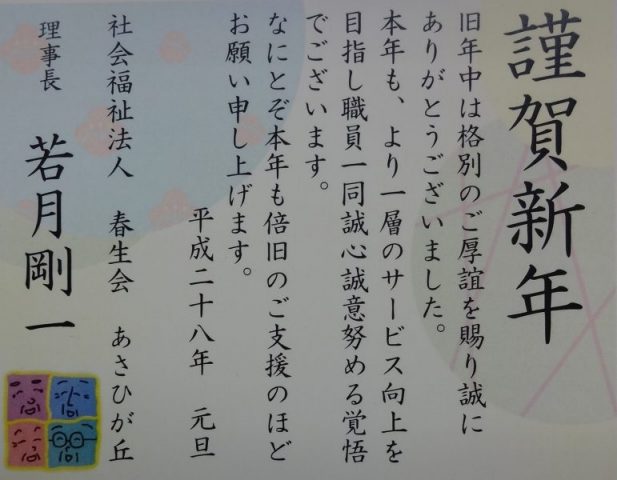 謹賀新年
旧年中は格別のご厚誼を賜り誠に
ありがとうございました。
本年も、より一層のサービス向上を
目指し職員一同誠心誠意努める覚悟
でございます。
なにとぞ本年も倍旧のご支援のほど
お願い申し上げます。
平成二十八年 元旦
社会福祉法人 春生会 あさひが丘
理事長 若月剛一